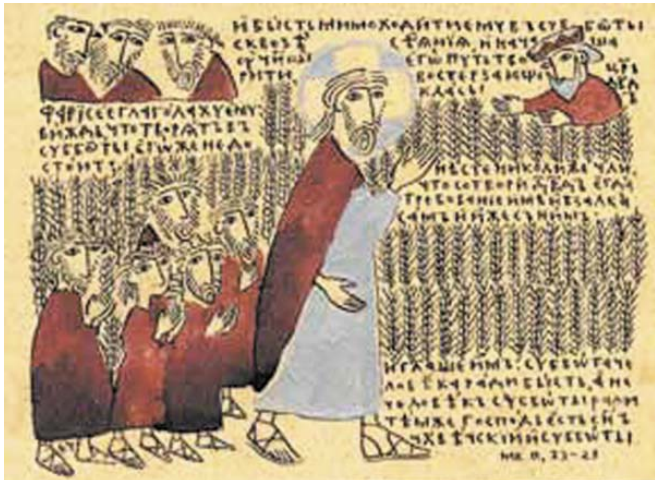 И҆ БЫ́СТЬ МИМОХОДИ́ТИ Є҆МꙊ̀ ВЪ СꙊББѠ́ТЫ
СКВОЗѢ̀ СѢ̑ѦНІѦ, И҆ НАЧА́ША
ОУ҆ЧН҃ЦЫ Є҆ГѠ̀ ПꙊ́ТЬ ТВО
РИ́ТИ, ВОСТЕРЗА́ЮЩЕ
КЛА́СЫ
ЦР҃Ь
ДВ҃ДЪ
ФАРІСЕ́Є ГЛАГО́ЛАХꙊ Є҆МꙊ̀:
ВИ́ЖДЬ, ЧТО̀ ТВОРѦ́ТЪ ВЪ
СꙊББѠ́ТЫ, Є҆ГѠ́ЖЕ НЕ ДО
СТО́ИТЪ
НѢ́СТЕ ЛИ НИКОЛИ́ЖЕ ЧЛЍ,
ЧТО̀ СОТВОРЍ ДВ҃ДЪ, Є҆ГДА̀
ТРЕ́БОВАНІЕ И҆МѢ̀ И҆ ВЗАЛКА̀
СА́МЪ И҆ И҆̀ЖЕ СЪ НИ́МЪ
И҆ ГЛАШЕ И҆̀МЪ: СꙊББѠ́ТА ЧЕ
ЛОВѢ́КА РА́ДИ БЫ́СТЬ, А҆ НЕ
ЧЕЛОВѢ́КЪ СꙊББѠ́ТЫ РА́ДИ
ТѢ́МЖЕ ГОСПО́ДЬ Є҆́СТЬ СН҃Ъ
ЧЛ҃ВѢ́ЧЕСКІЙ И҆ СꙊББѠ́ТЫ
МК II, 23-28